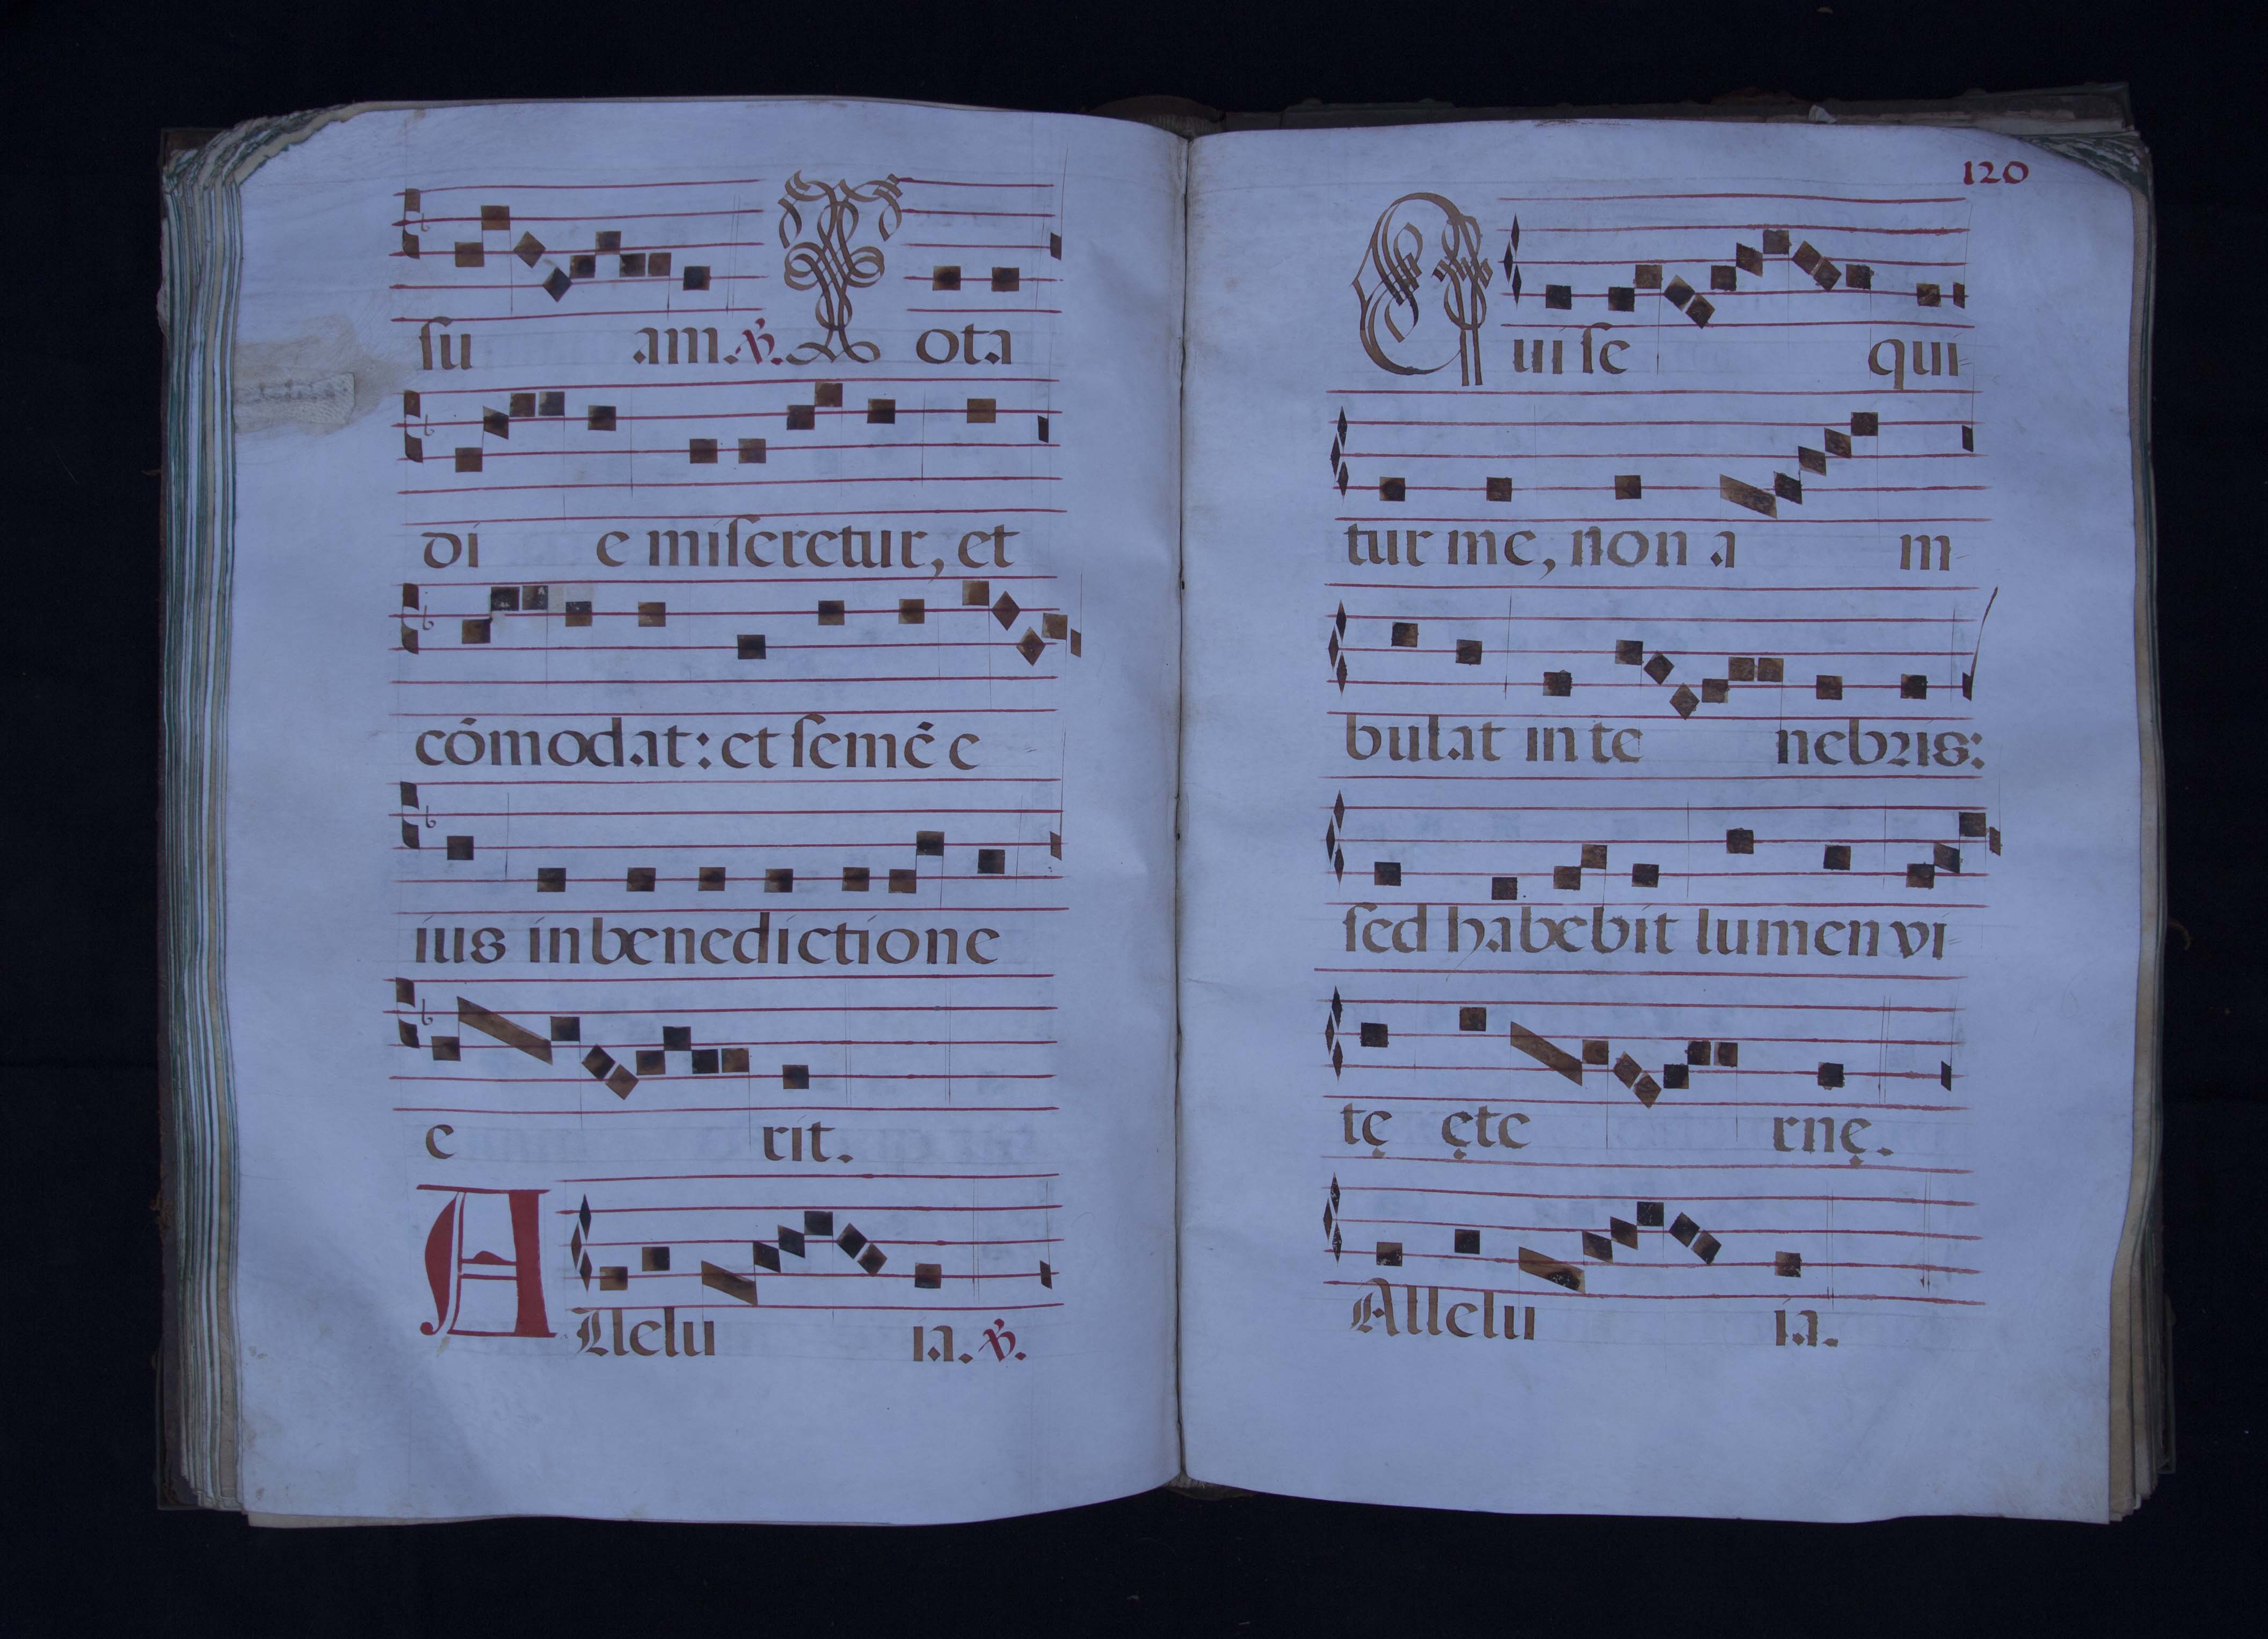 su am. ℣. Tota
di e miseretur, et
cōmodat: et semē e
ius in benedictione
e rit.
Allelu ia. ℣.
120
Qui se qui
tur me, non a m
bulat in te nebris:
sed habebit lumen vi
tę ęte rnę.
Allelu ia.